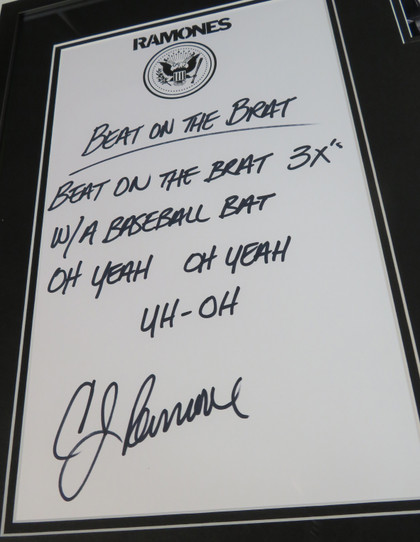 RAMONES
BEAT ON THE BRAT
BEAT ON THE BRAT 3X"
W/A BASEBALL BAT
OH YEAH OH YEAH
UH-OH
CJ Ramone